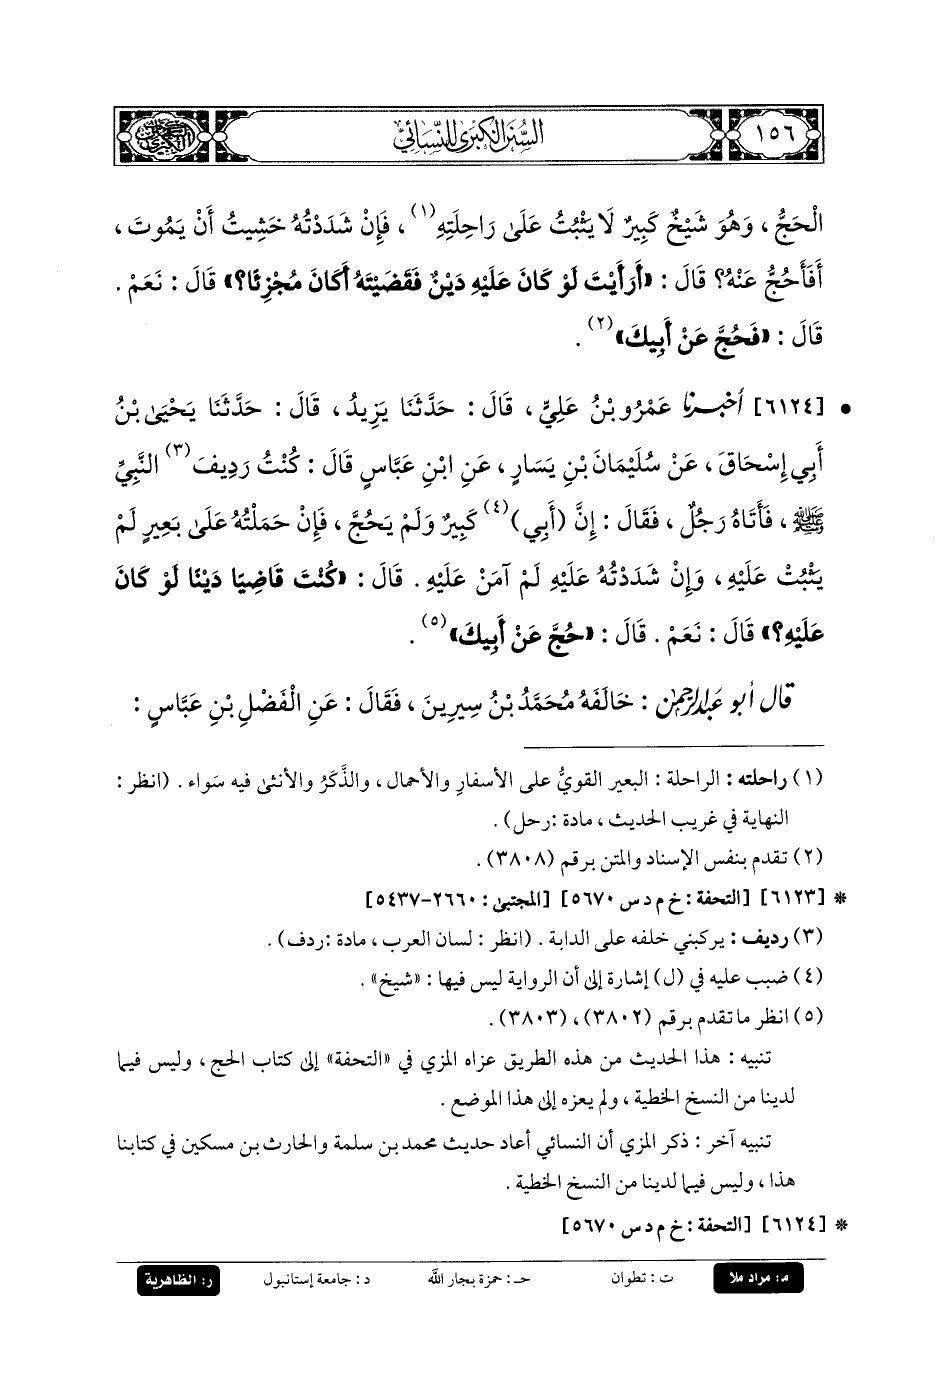 ١٥٦
السُّنَنُ الكِبْرَى لِلنَّسَائِيِّ
الْحَجُّ، وَهُوَ شَيْخٌ كَبِيرٌ لَا يَثْبُتُ عَلَى رَاحِلَتِهِ(١)، فَإِنْ شَدَدْتُهُ خَشِيتُ أَنْ يَمُوتَ،
أَفَأَحُجُّ عَنْهُ؟ قَالَ: «أَرَأَيْتَ لَوْ كَانَ عَلَيْهِ دَيْنٌ فَقَضَيْتَهُ أَكَانَ مُجْزِئًا؟» قَالَ: نَعَمْ.
قَالَ: «فَحُجَّ عَنْ أَبِيكَ»(٢).
• [٦١٢٤] أخبرنا عَمْرُو بْنُ عَلِيٍّ، قَالَ: حَدَّثَنَا يَزِيدُ، قَالَ: حَدَّثَنَا يَحْيَى بْنُ
أَبِي إِسْحَاقَ، عَنْ سُلَيْمَانَ بْنِ يَسَارٍ، عَنِ ابْنِ عَبَّاسٍ قَالَ: كُنْتُ رَدِيفَ(٣) النَّبِيِّ
ﷺ، فَأَتَاهُ رَجُلٌ، فَقَالَ: إِنَّ (أَبِي)(٤) كَبِيرٌ وَلَمْ يَحُجَّ، فَإِنْ حَمَلْتُهُ عَلَى بَعِيرٍ لَمْ
يَثْبُتْ عَلَيْهِ، وَإِنْ شَدَدْتُهُ عَلَيْهِ لَمْ آمَنْ عَلَيْهِ. قَالَ: «كُنْتَ قَاضِيًا دَيْنًا لَوْ كَانَ
عَلَيْهِ؟» قَالَ: نَعَمْ. قَالَ: «حُجَّ عَنْ أَبِيكَ»(٥).
قال أبو عبد الرحمن: خَالَفَهُ مُحَمَّدُ بْنُ سِيرِينَ، فَقَالَ: عَنِ الْفَضْلِ بْنِ عَبَّاسٍ:
(١) راحلته: الراحلة: البعير القويُّ على الأسفارِ والأحمال، والذَّكَرُ والأنثى فيه سَواء. (انظر:
النهاية في غريب الحديث، مادة: رحل).
(٢) تقدم بنفس الإسناد والمتن برقم (٣٨٠٨).
* [٦١٢٣] [التحفة: خ م د س ٥٦٧٠] [المجتبى: ٢٦٦٠-٥٤٣٧]
(٣) رديف: يركبني خلفه على الدابة. (انظر: لسان العرب، مادة: ردف).
(٤) ضبب عليه في (ل) إشارة إلى أن الرواية ليس فيها: «شيخ».
(٥) انظر ما تقدم برقم (٣٨٠٢)، (٣٨٠٣).
تنبيه: هذا الحديث من هذه الطريق عزاه المزي في «التحفة» إلى كتاب الحج، وليس فيما
لدينا من النسخ الخطية، ولم يعزه إلى هذا الموضع.
تنبيه آخر: ذكر المزي أن النسائي أعاد حديث محمد بن سلمة والحارث بن مسكين في كتابنا
هذا، وليس فيما لدينا من النسخ الخطية.
* [٦١٢٤] [التحفة: خ م د س ٥٦٧٠]
م: مراد ملا ت: تطوان حـ: حمزة بجار الله د: جامعة إستانبول ر: الظاهرية